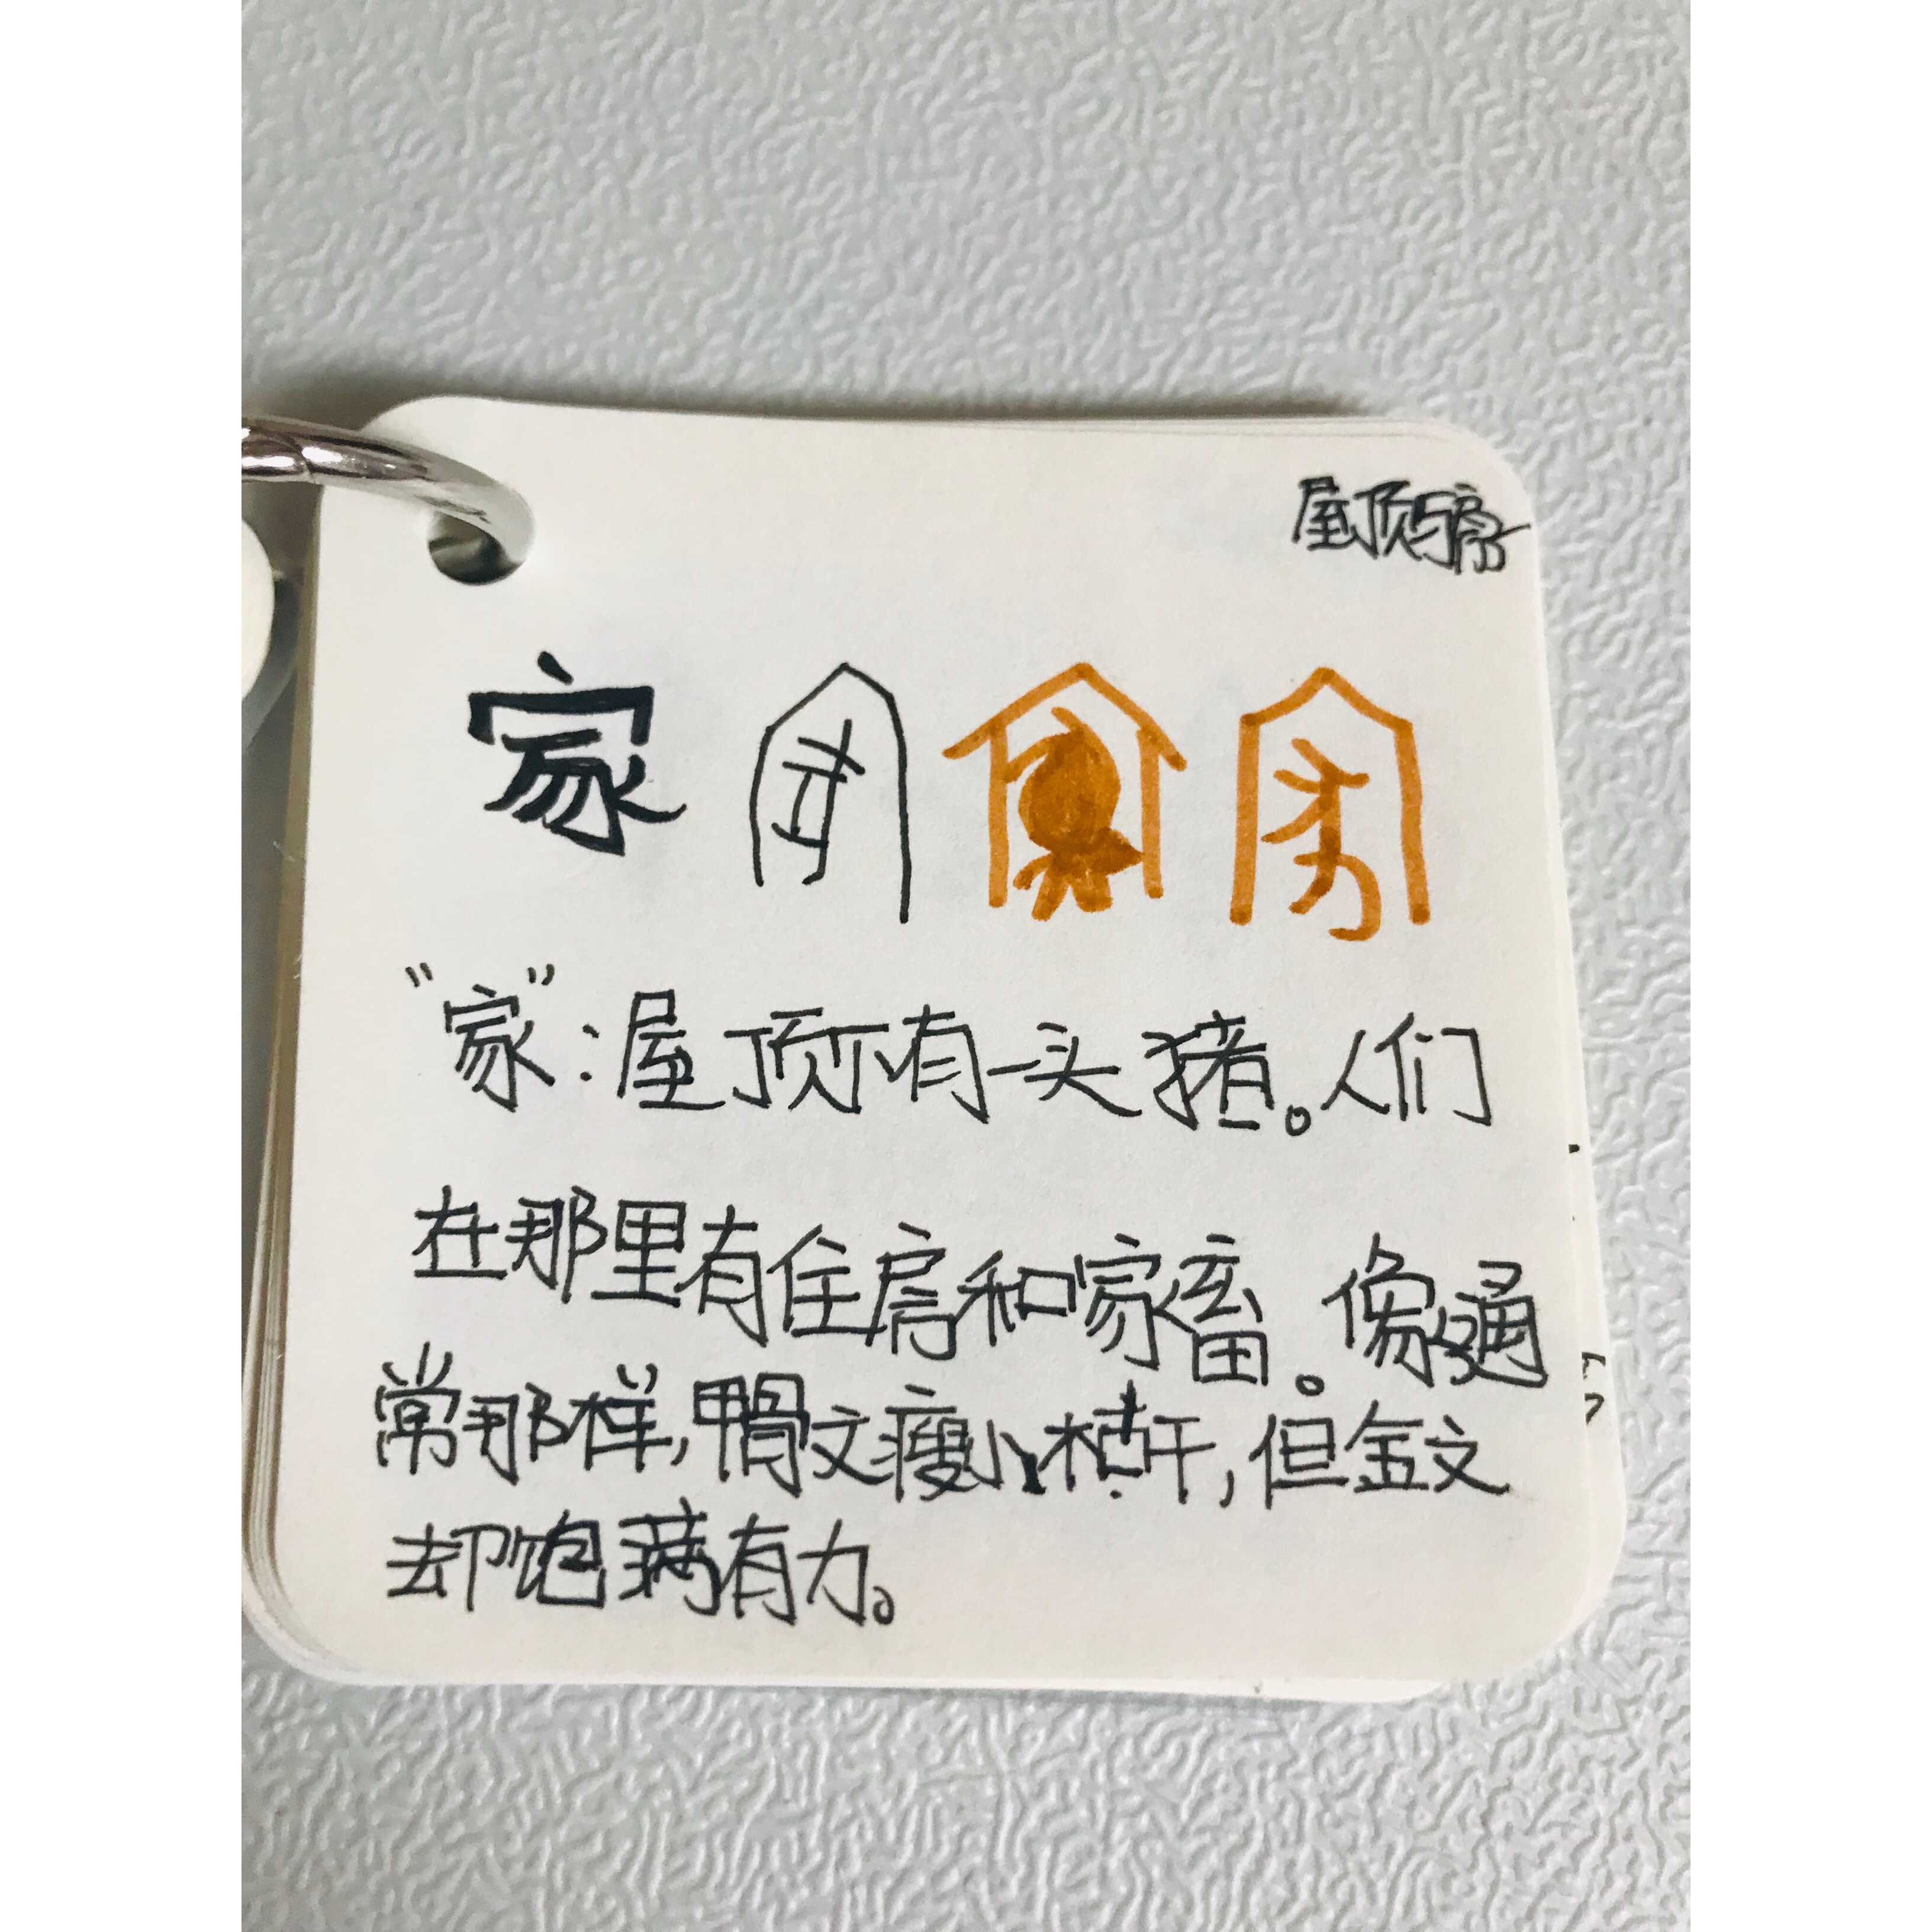 屋顶与房
家
“家”:屋顶下有一头猪。人们
在那里有住房和家畜。像通
常那样,甲骨文瘦小枯干,但金文
却饱满有力。